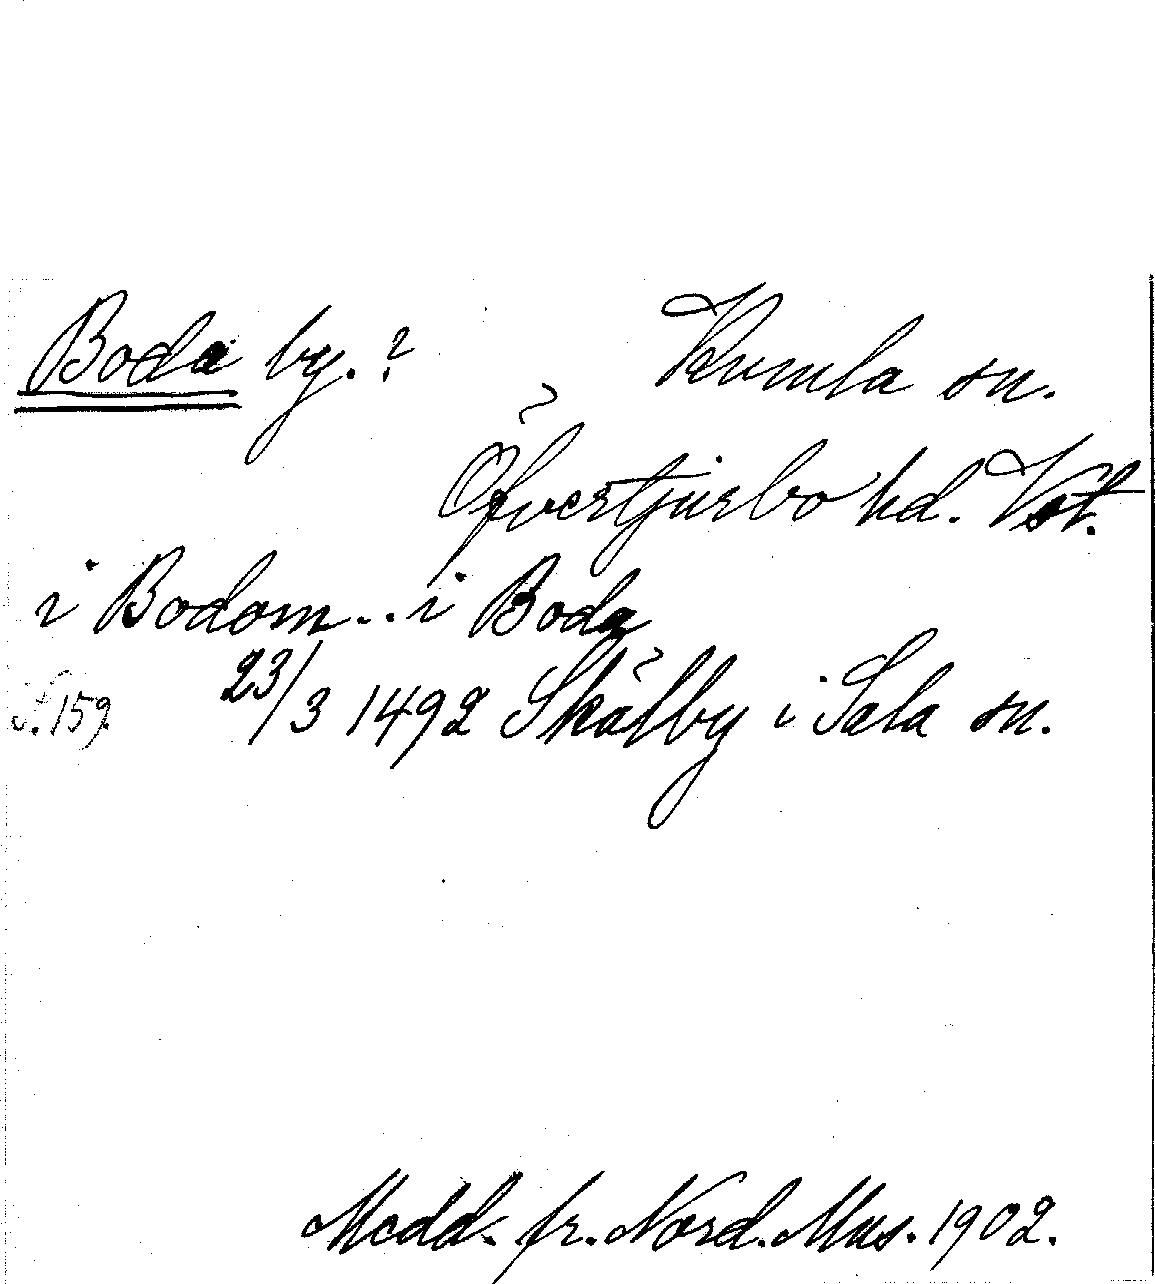 Boda by.? Kumla sn.
Öfvertjurbo hd. Vst.
i Bodom... i Boda
S. 159. 23/3 1492 Skålby i Sala sn.
Medd. fr. Nord. Mus. 1902.